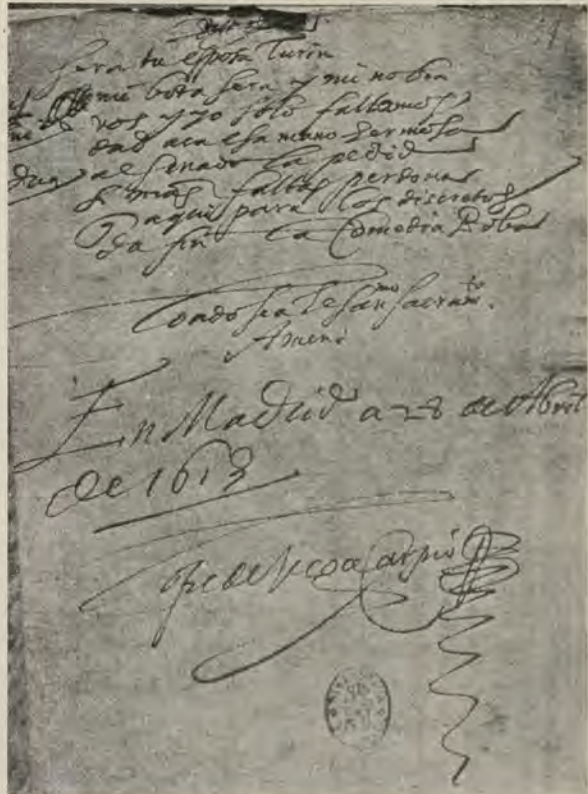 sera tu esposa Turin
mi boda sera y mi nobia
vos y yo solo faltamos
dad aca esa mano hermosa
al senado la pedid
si mis faltas perdona
aqui para los discretos
da fin la Comedia Boba
Loado sea el san^mo sacram^to.
Amen
En Madrid a 28 de Abril
de 1613
Lope de Vega Carpio